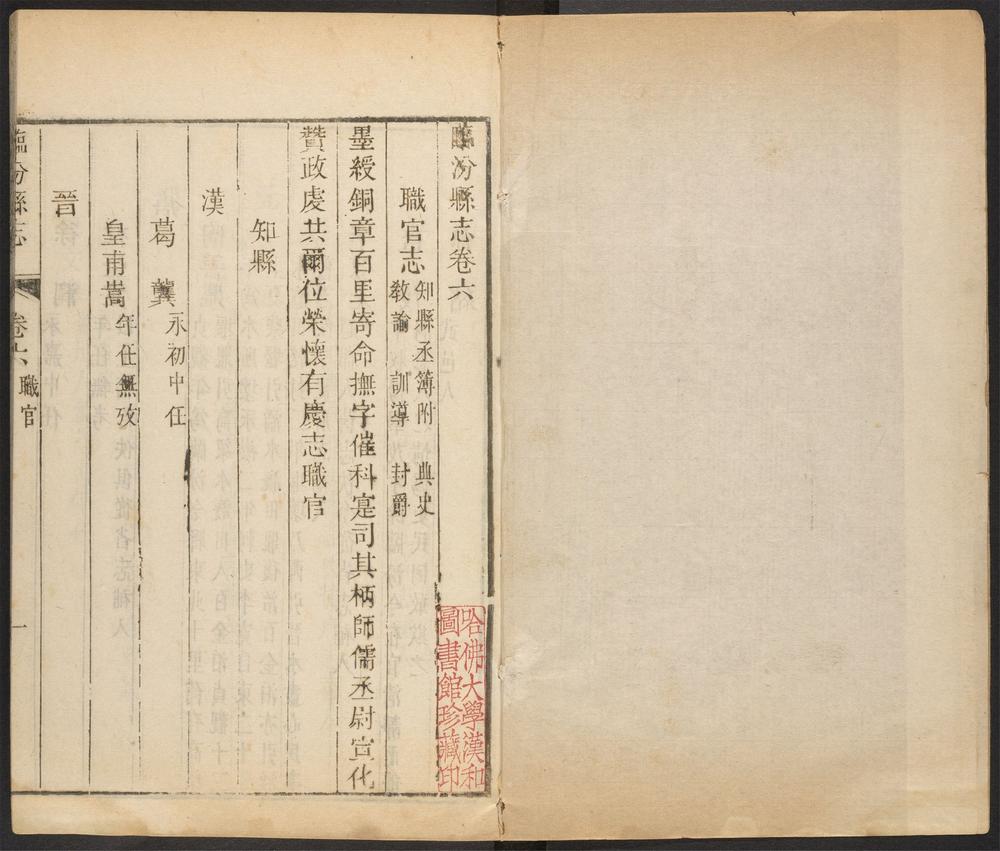 臨汾縣志卷六
職官志 知縣丞簿附 典史
教諭 訓導 封爵
墨綬銅章百里寄命撫字催科寔司其柄師儒丞尉宣化
贊政處共爾位榮懷有慶志職官
知縣
漢
葛龔 永初中任
皇甫嵩 年任無攷
晉
臨汾縣志 卷六 職官 一
哈佛大學漢和
圖書館珍藏印